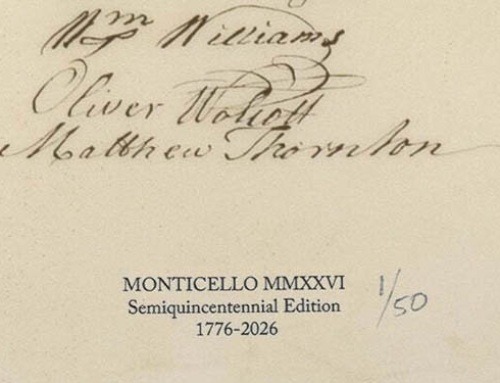 Wm Williams
Oliver Wolcott
Matthew Thornton
MONTICELLO MMXXVI
Semiquincentennial Edition
1776-2026
1/50